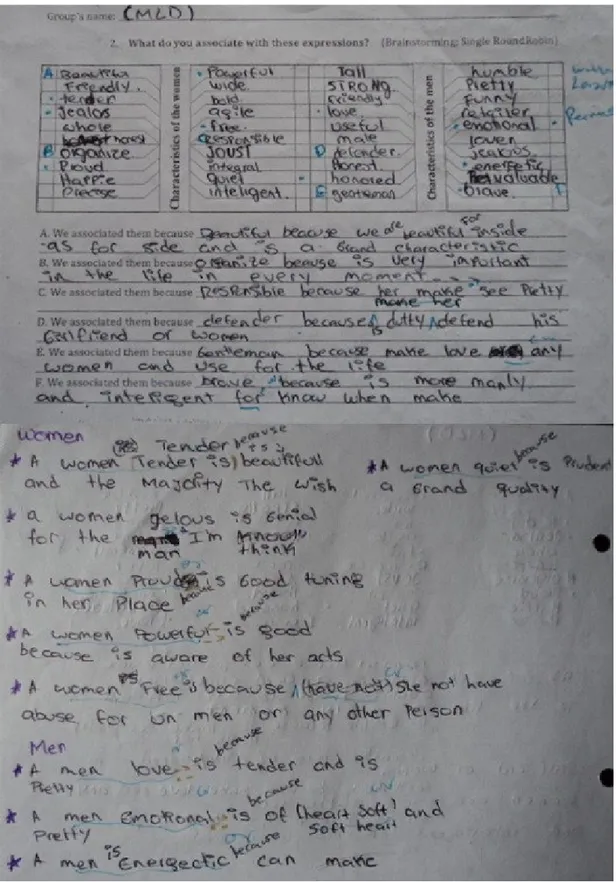 Group's name: (MLD)
2. What do you associate with these expressions? (Brainstorming; Single RoundRobin)
Characteristics of the women
A Beautiful
Friendly.
tender
Jealos
whole
honest
B organize
Proud
Happie
Precise
Powerful
wide
bold
agile
free
Responsible
Joust
integral
quiet
inteligent
Characteristics of the men
Tall
STRONG
friendly
love
useful
male
D defender
Honest
honored
E gentleman
humble
Pretty
Funny
retailer
emotional
lover
jealous
energetic
valuable
brave F
A. We associated them because Beautiful because we are beautiful for inside
as for side and is a Grand characteristic
B. We associated them because organize because is very important
in the life in every moment
C. We associated them because Responsible because her make see Pretty
make her
D. We associated them because defender because is dutty defend his
Girlfriend or women
E. We associated them because Gentleman because make love any
women and use for the life
F. We associated them because brave, because is more manly
and inteligent for know when make
Women
Tender is because
* A women (Tender is) beautifull
and the Majority The wish
* A women quiet is because Prudent
a Grand quality
* a women gelous is Genial
for the man I'm know think
* A women Proud is Good tuning
in her Place because
* A women Powerful is because good
because is aware of her acts
* A women is Free is because (have not) She not have
abuse for un men or any other Person
Men
* A men love is because tender and is
Pretty
* A men Emotional is because of (heart Soft) and
Pretty Soft heart
* A men is Energectic because can make